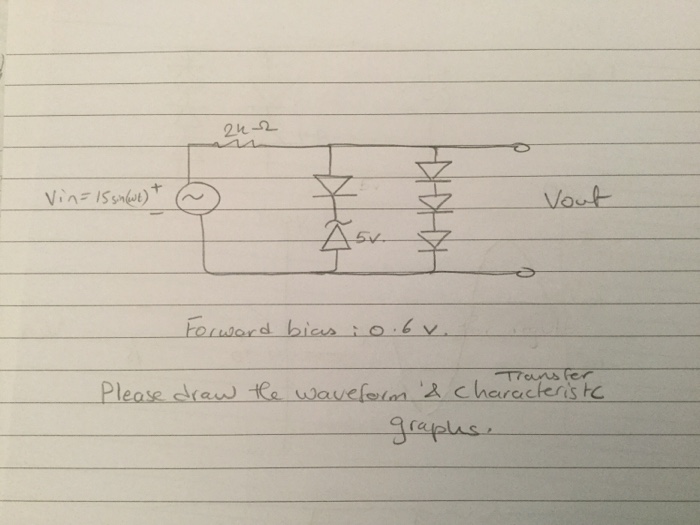 2k-Ω
Vin=15sin(wt)
+
-
5v.
Vout
Forward bias : 0.6 v.
Please draw the waveform & Transfer characteristc
graphs.